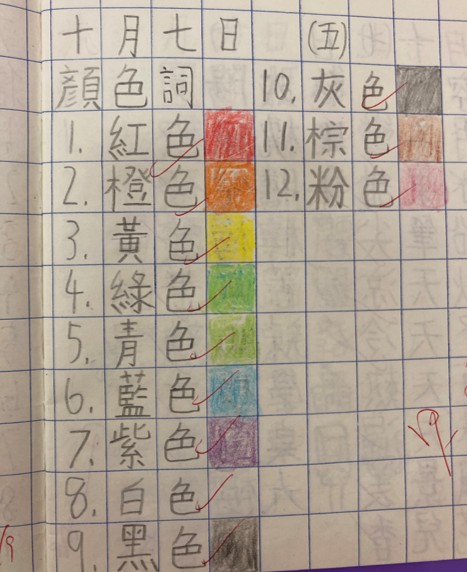 十月七日 (五)
顏色詞
1. 紅色
2. 橙色
3. 黃色
4. 綠色
5. 青色
6. 藍色
7. 紫色
8. 白色
9. 黑色
10. 灰色
11. 棕色
12. 粉色